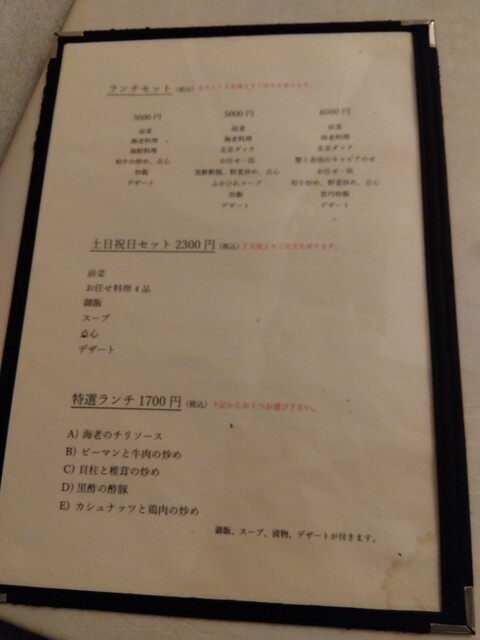 ランチセット (税込) 各セット2名様よりご注文承ります。
5000円 5000円 8000円
前菜 前菜 前菜
海老料理 海老料理 海老料理
海鮮料理 北京ダック 北京ダック
和牛の炒め、点心 お任せ一品 蟹と春雨のキャビアのせ
炒飯 黒酢酢豚、野菜炒め、点心 お任せ一品
デザート ふかひれスープ 和牛炒め、野菜炒め、点心
炒飯
デザート デザート
土日祝日セット 2300円 (税込) 2名様よりご注文承ります。
前菜
お任せ料理4品
御飯
スープ
点心
デザート
特選ランチ 1700円 (税込) 下記からお1つお選び下さい。
A) 海老のチリソース
B) ピーマンと牛肉の炒め
C) 貝柱と椎茸の炒め
D) 黒酢の酢豚
E) カシュナッツと鶏肉の炒め
御飯、スープ、漬物、デザートが付きます。